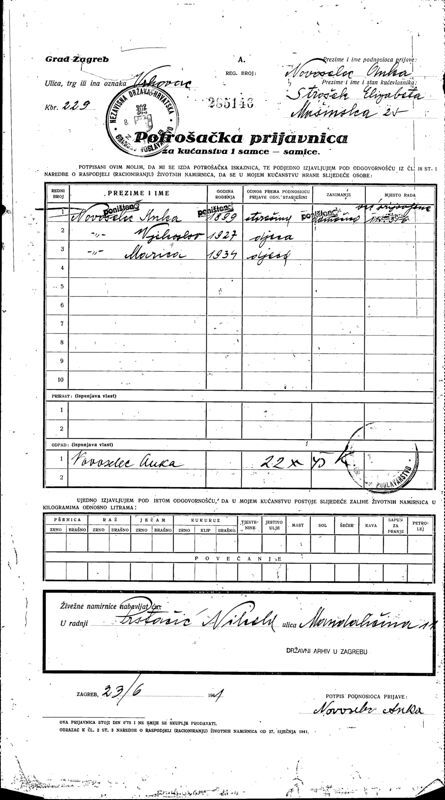 Grad Zagreb
A.
Prezime i ime podnosioca prijave:
Ulica, trg ili ina oznaka Vrhovac
REG. BROJ:
Novoselec Anka
Prezime i ime i stan kućevlasnika:
Kbr. 229
NEZAVISNA DRŽAVA HRVATSKA
265146
Elizabeta
25
Potrošačka prijavnica
za kućanstva i samce — samice.
POTPISANI OVIM MOLIM, DA MI SE IZDA POTROŠAČKA ISKAZNICA, TE PODJEDNO IZJAVLJUJEM POD ODGOVORNOŠĆU IZ ČL. 18 ST. 1
NAREDBE O RASPODJELI (RACIONIRANJU) ŽIVOTNIH NAMIRNICA, DA SE U MOJEM KUĆANSTVU HRANE SLIJEDEĆE OSOBE:
REDNI BROJ PREZIME I IME GODINA ROĐENJA ODNOS PREMA PODNOSIOCU PRIJAVE ODN. STARJEŠINI ZANIMANJE MJESTO RADA
poništeno poništeno poništeno
1 Novoselec Anka 1899
2 -"- Vjekoslav 1927 djeca
3 -"- Marica 1934 djeca
4
5
6
7
8
9
10
PRIRAST: (Ispunjava vlast)
1
2
OTPAD: (Ispunjava vlast)
1 Novoselec Anka 22 X 45
2
UJEDNO IZJAVLJUJEM POD ISTOM ODGOVORNOŠĆU, DA U MOJEM KUĆANSTVU POSTOJE SLIJEDEĆE ZALIHE ŽIVOTNIH NAMIRNICA U
KILOGRAMIMA ODNOSNO LITRAMA:
PŠENICA RAŽ JEČAM KUKURUZ TJESTENINE JESTIVO ULJE MAST SOL ŠEĆER KAVA SAPUN ZA PRANJE PETROLEJ
ZRNO BRAŠNO ZRNO BRAŠNO ZRNO BRAŠNO ZRNO KLIP BRAŠNO
POVEĆANJE
Živežne namirnice nabavljat ću:
U radnji ulica Mandaličina
DRŽAVNI ARHIV U ZAGREBU
ZAGREB, 23/6 1941
POTPIS PODNOSIOCA PRIJAVE:
Novoselec Anka
OVA PRIJAVNICA STOJI DIN 0'75 I NE SMIJE SE SKUPLJE PRODAVATI.
OBRAZAC K ČL. 2 ST. 3 NAREDBE O RASPODJELI (RACIONIRANJU) ŽIVOTNIH NAMIRNICA OD 27. SIJEČNJA 1941.